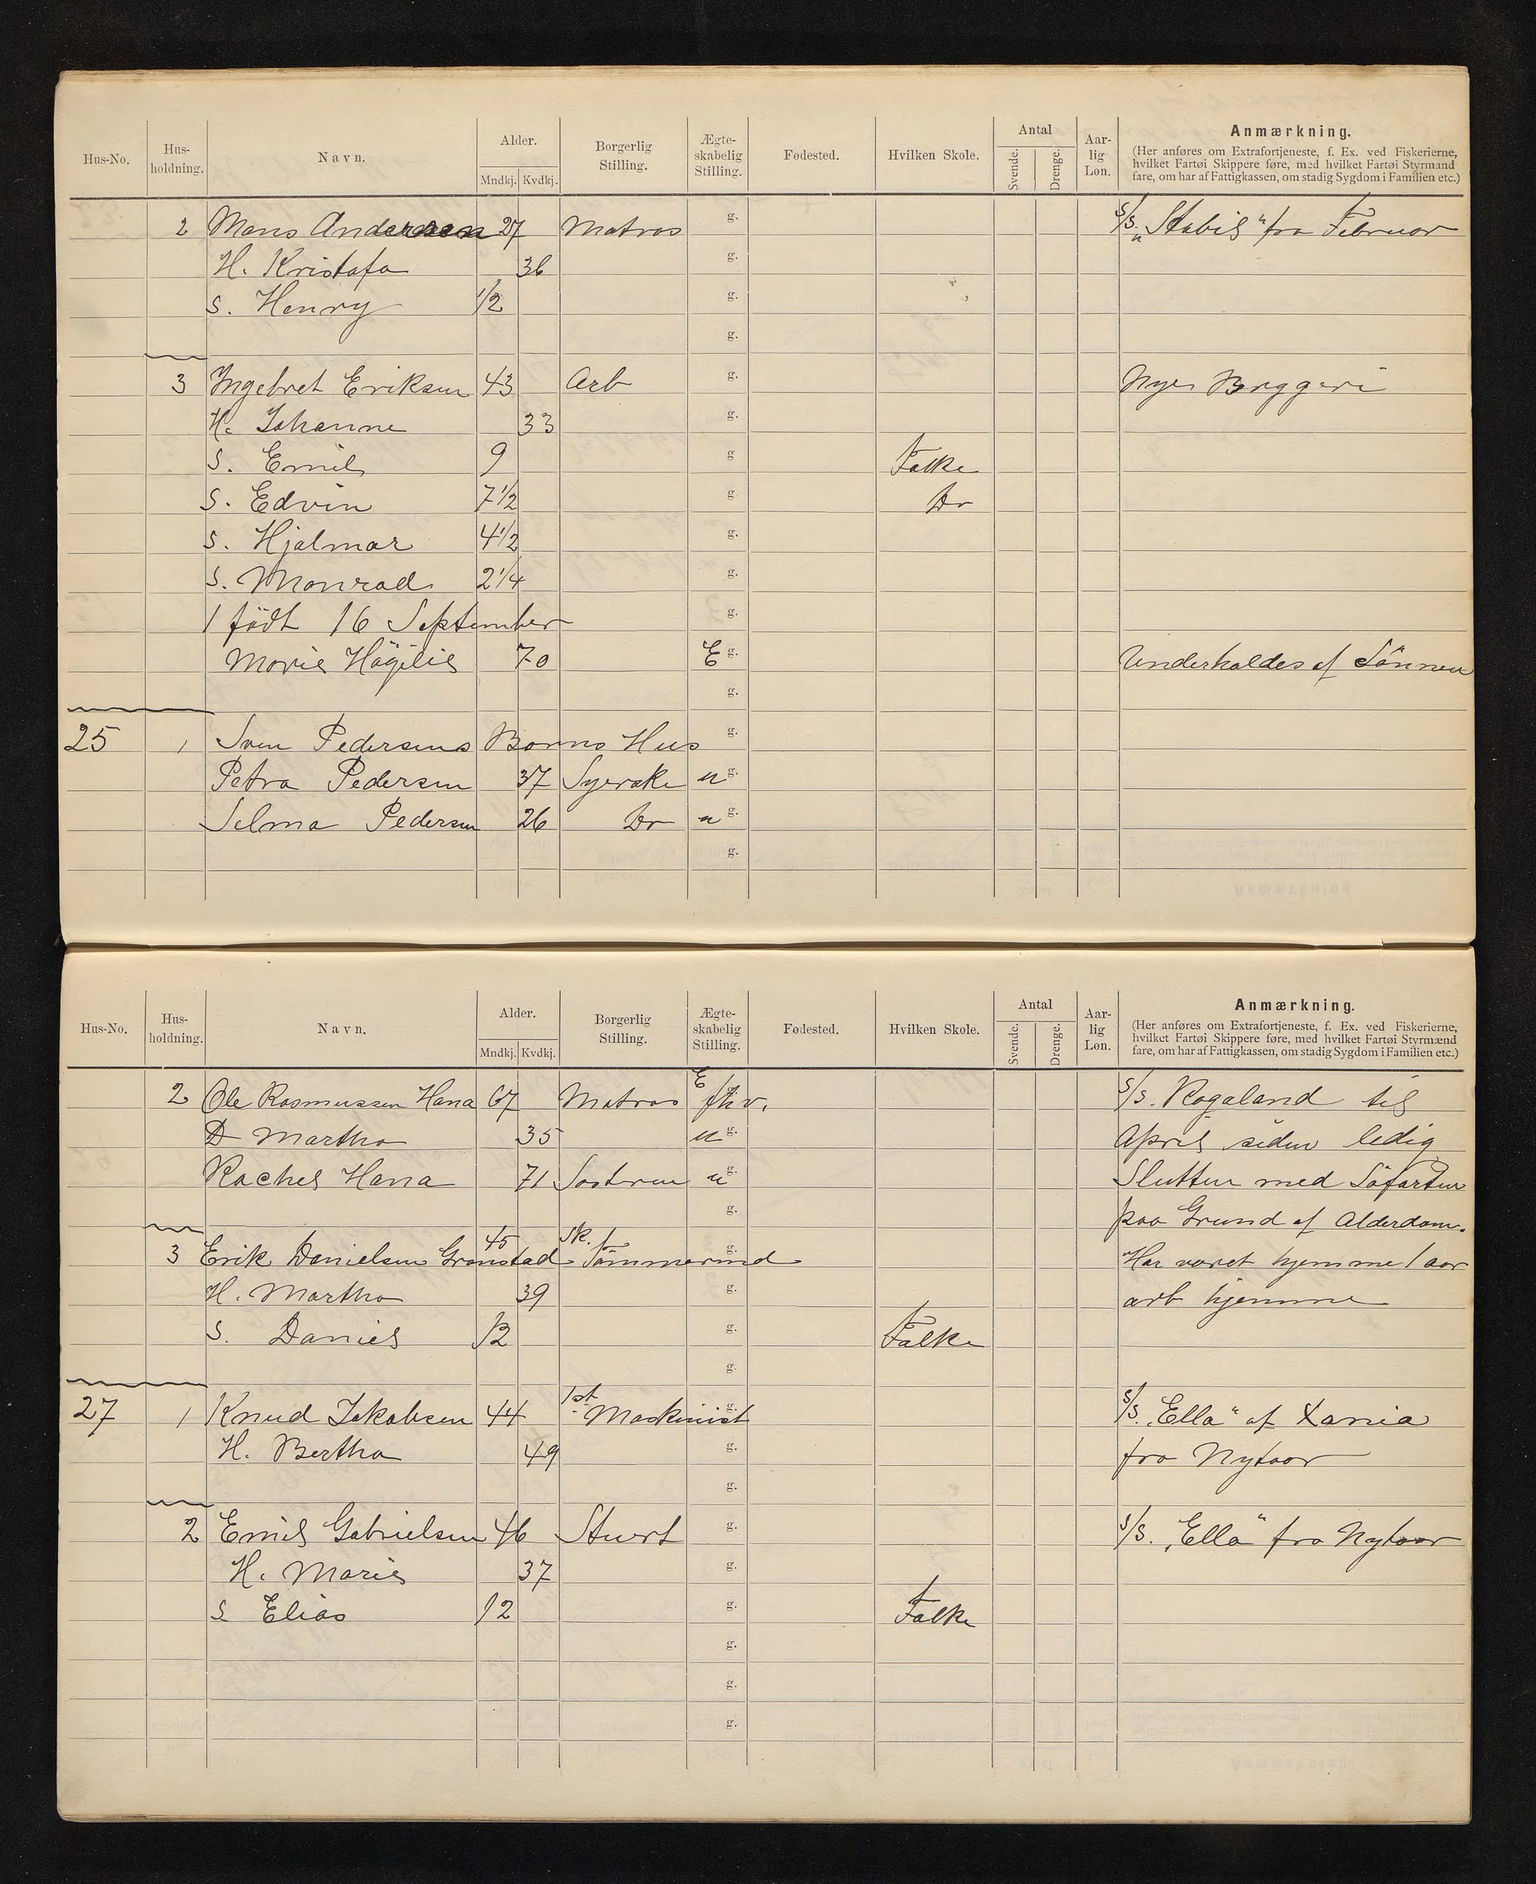 Hus-No. Hus-holdning. Navn. Alder. Mndkj. Kvdkj. Borgerlig Stilling. Ægte-skabelig Stilling. Fødested. Hvilken Skole. Antal Svende. Drenge. Aar-lig Løn. Anmærkning.
(Her anføres om Extrafortjeneste, f. Ex. ved Fiskerierne,
hvilket Fartøi Skippere føre, med hvilket Fartøi Styrmænd
fare, om har af Fattigkassen, om stadig Sygdom i Familien etc.)
2 Mons Andersen 27 Matros g. S/S. „Stabil" fra Februar
H. Kristofa 36 g.
S. Henry 1/2 g.
g.
3 Ingebret Eriksen 43 Arb g. Nyes Bryggeri
H. Johanne 33 g.
S. Emil 9 g Falke
S. Edvin 7 1/2 g Do
S. Hjalmar 4 1/2 g.
S. Monrad 2 1/4 g.
1 födt 16 September g.
Marie 70 E g. Underholdes af Sönnen
g.
25 1 Sven Pedersens Barns Hus g.
Petra Pedersen 37 Syerske u g.
Selma Pedersen 26 Do u g.
g.
Hus-No. Hus-holdning. Navn. Alder. Mndkj. Kvdkj. Borgerlig Stilling. Ægte-skabelig Stilling. Fødested. Hvilken Skole. Antal Svende. Drenge. Aar-lig Løn. Anmærkning.
(Her anføres om Extrafortjeneste, f. Ex. ved Fiskerierne,
hvilket Fartøi Skippere føre, med hvilket Fartøi Styrmænd
fare, om har af Fattigkassen, om stadig Sygdom i Familien etc.)
2 Ole Rasmussen Hana 67 Matros E S/S. Rogaland til
D Martha 35 u g. April siden ledig
Rachel Hana 71 Sösteren u g. Sluttur med Söfarten
g. paa Grund af Alderdom.
3 Erik Danielsen Gronstad 45 Sk. Tömmermd g. Har været hjemme 1 aar
H. Martha 39 g. arb hjemme
S. Daniel 12 g. Falke
g.
27 1 Knud Jakobsen 44 1st Maskinist g. S/S. „Ella" af Xania
H. Bertha 49 g. fra Nytaar
g.
2 Emil Gabrielsen 46 Stuert g. S/S. „Ella" fra Nytaar
H. Marie 37 g.
S Elias 12 g. Falke
g.
g.
g.